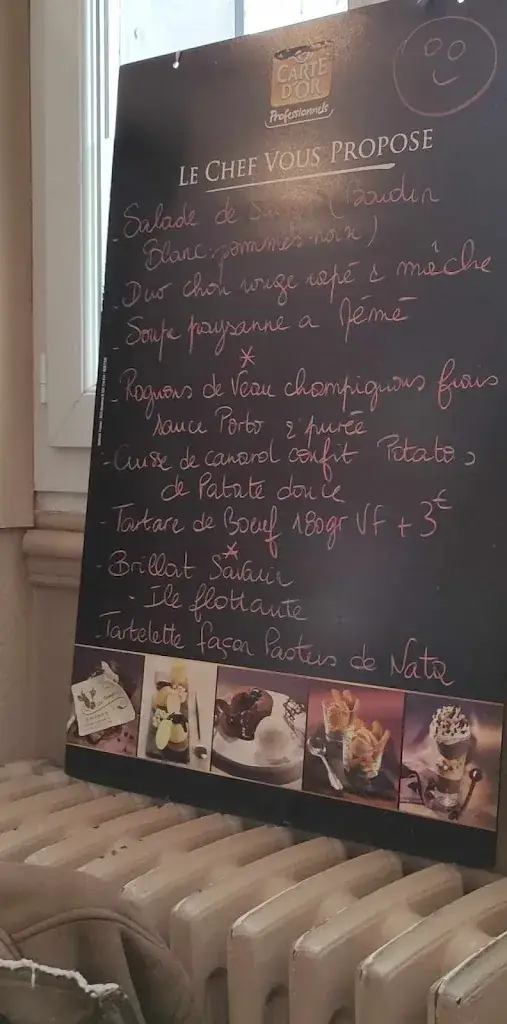 CARTE
D'OR
Professionnels
LE CHEF VOUS PROPOSE
- Salade de (Boudin
Blanc-pommes-noix)
- Duo chou rouge rapé & mâche
- Soupe paysanne a Mémé
*
- Rognons de Veau champignons frais
sauce Porto & purée
- Cuisse de canard confit Potatos
de Patate douce
- Tartare de Boeuf 180gr VF + 3€
*
- Brillat Savarin
- Ile flottante
- Tartelette façon Pasteis de Nata